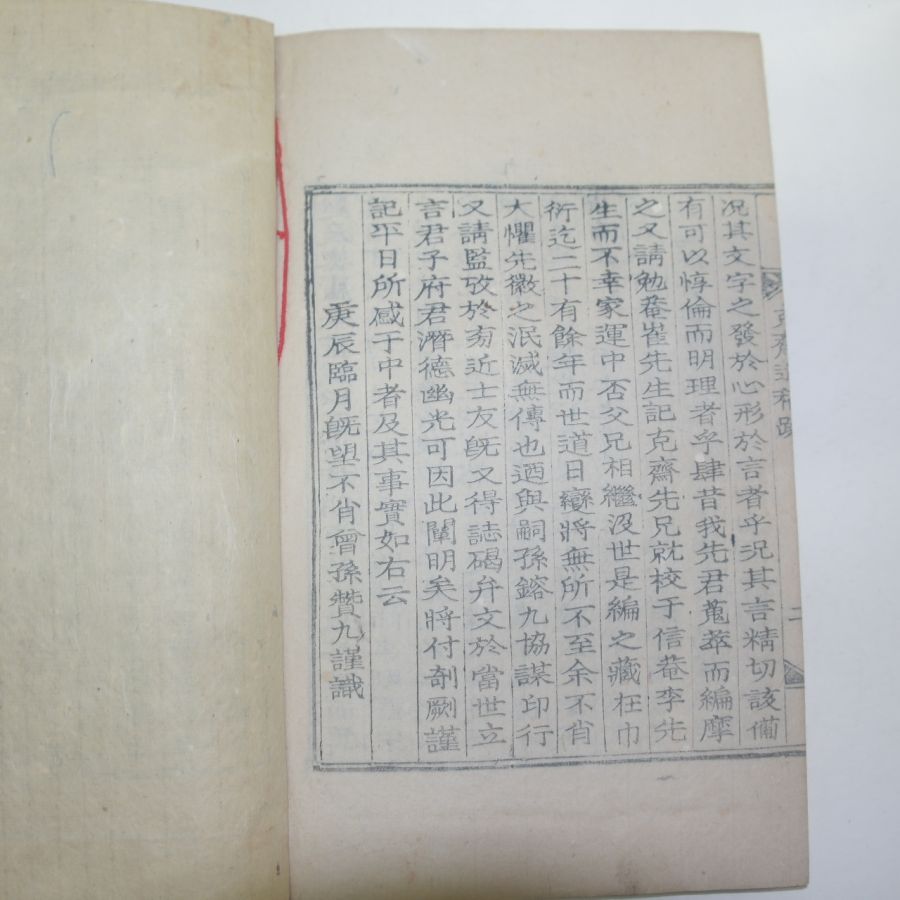 况其文字之發於心形於言者乎况其言精切該備
有可以惇倫而明理者乎肆昔我先君蒐萃而編摩
之又請勉菴崔先生記克齋先兄就校于信菴李先
生而不幸家運中否父兄相繼沒世是編之藏在巾
衍迄二十有餘年而世道日變將無所不至余不肖
大懼先徽之泯滅無傳也迺與嗣孫鎔九協謀印行
又請監攷於旁近士友旣又得誌碣弁文於當世立
言君子府君潛德幽光可因此闡明矣將付剞劂謹
記平日所感于中者及其事實如右云
庚辰臨月旣望不肖曾孫贊九謹識
克齋遺稿跋
二